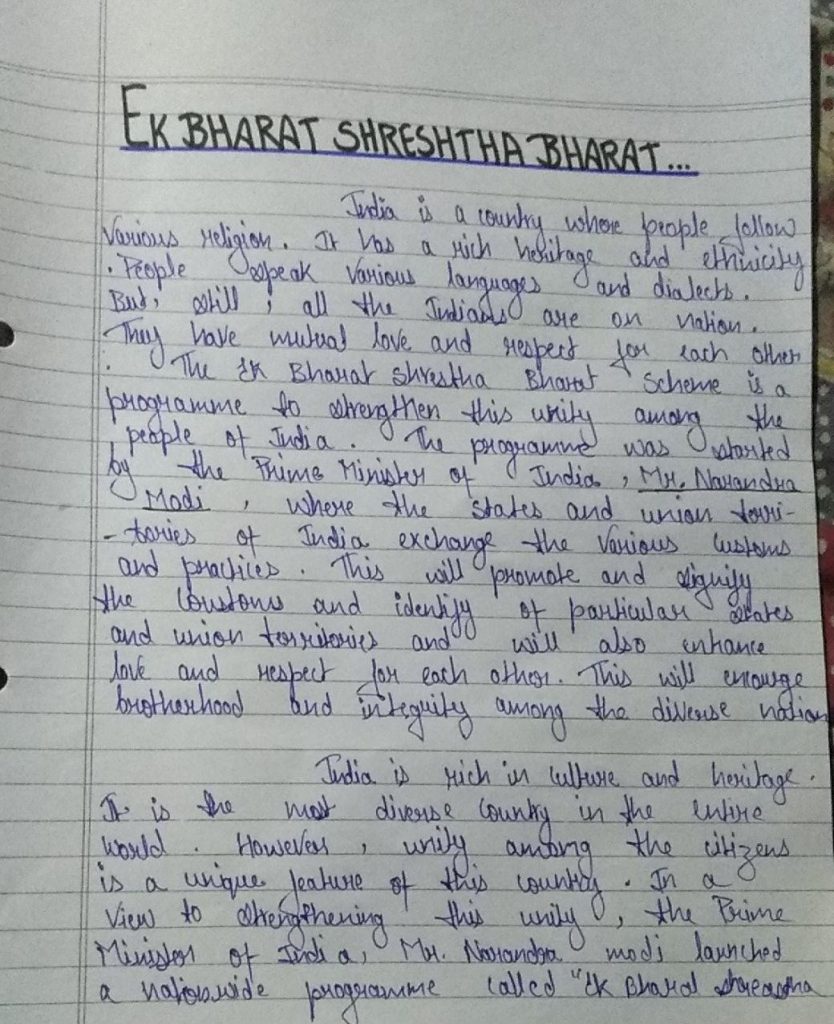 EK BHARAT SHRESHTHA BHARAT...
India is a country where people follow
Various religion. It has a rich heritage and ethinicity
. People speak various languages and dialects.
But, still, all the Indians are on nation.
They have mutual love and respect for each other
. The Ek Bharat Shrestha Bharat Scheme is a
programme to strengthen this unity among the
people of India. The programme was started
by the Prime Minister of India, Mr. Narandra
Modi, where the states and union terri-
-tories of India exchange the various customs
and practices. This will promote and signify
the Coustoms and identify of particular states
and union territories and will also enhance
love and respect for each other. This will encourge
brotherhood and integuity among the diverse nation
India is rich in culture and heritage.
It is the most diverse country in the entire
world. However, unity among the citizens
is a unique feature of this country. In a
view to strengthening this unity, the Prime
Minister of India, Mr. Narandra modi launched
a nationwide programme called "Ek Bharat shreastha